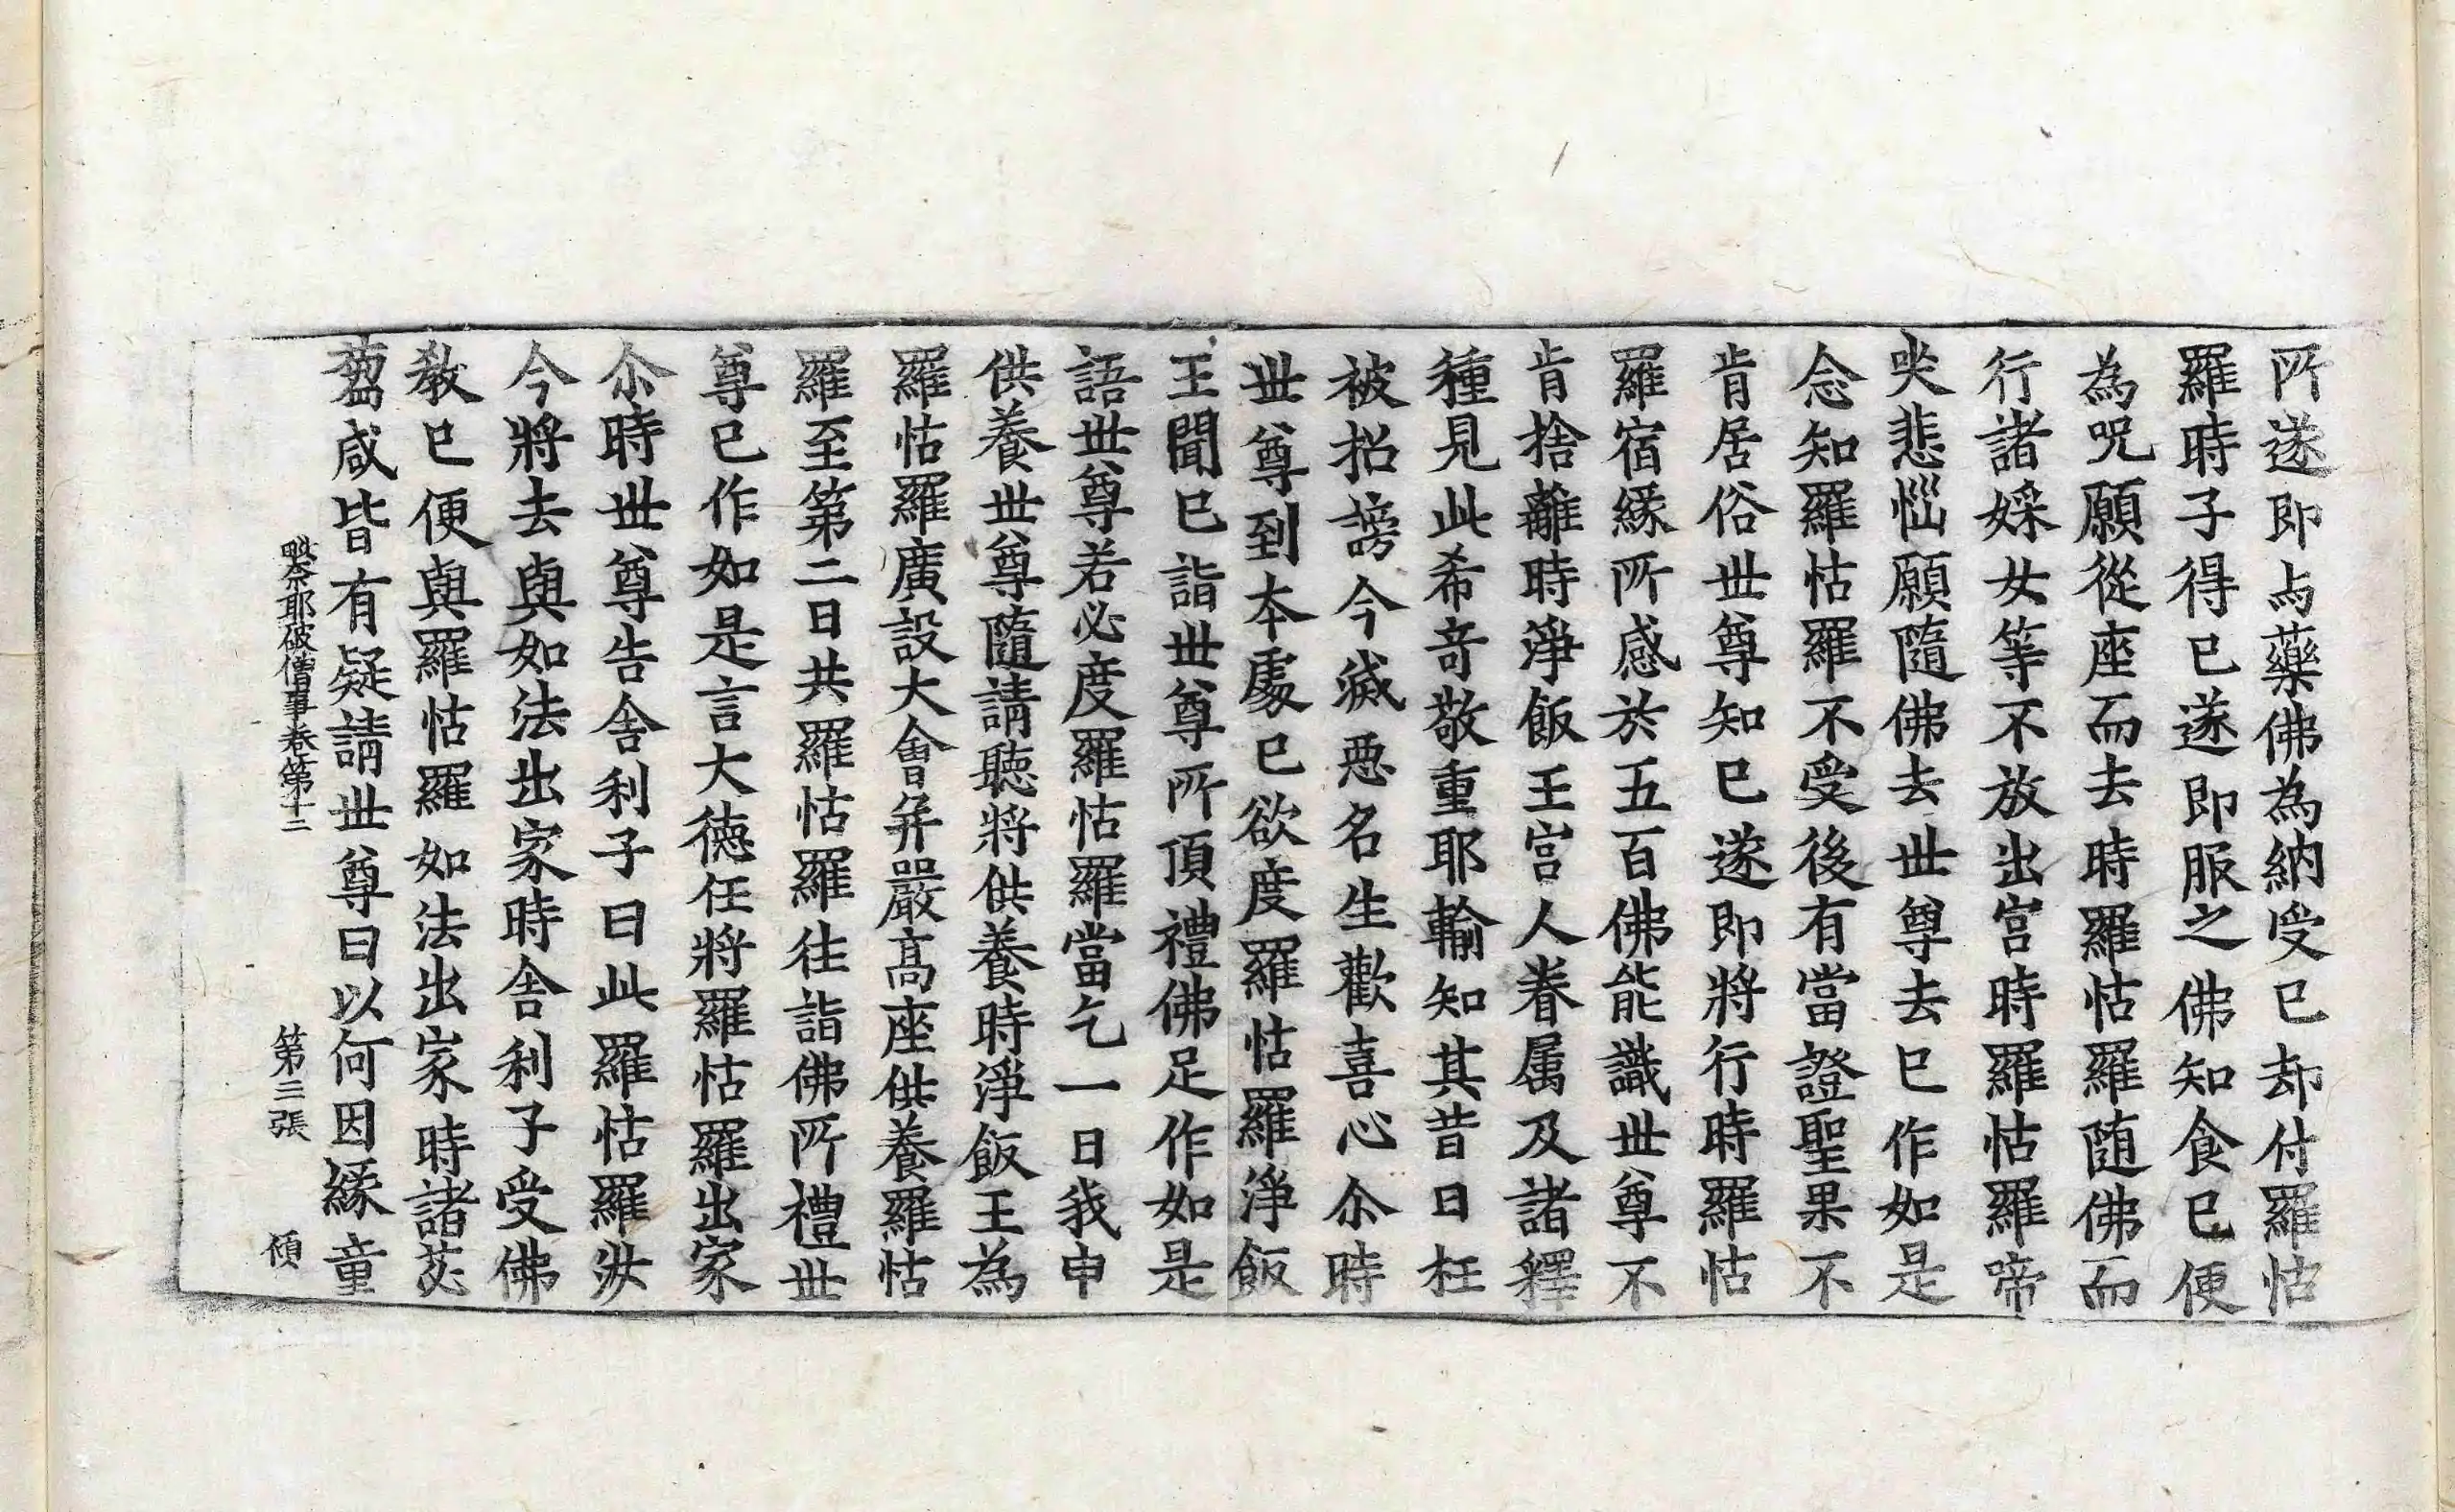 所遂即与藥佛為納受已却付羅怙
羅時子得已遂即服之佛知食已便
為呪願從座而去時羅怙羅隨佛而
行諸婇女等不放出宮時羅怙羅啼
哭悲惱願隨佛去世尊去已作如是
念知羅怙羅不受後有當證聖果不
肯居俗世尊知已遂即將行時羅怙
羅宿緣所感於五百佛能識世尊不
肯捨離時淨飯王宮人眷属及諸釋
種見此希竒敬重耶輸知其昔日枉
被招謗今滅惡名生歡喜心尒時
世尊到本處已欲度羅怙羅淨飯
王聞已詣世尊所頂禮佛足作如是
語世尊若必度羅怙羅當乞一日我申
供養世尊隨請聽將供養時淨飯王為
羅怙羅廣設大會并嚴高座供養羅怙
羅至第二日共羅怙羅往詣佛所禮世
尊已作如是言大德任將羅怙羅出家
尒時世尊告舍利子曰此羅怙羅汝
今將去與如法出家時舍利子受佛
教已便與羅怙羅如法出家時諸苾
蒭咸皆有疑請世尊曰以何因緣童
毗奈耶破僧事卷第十二 第三張 傾